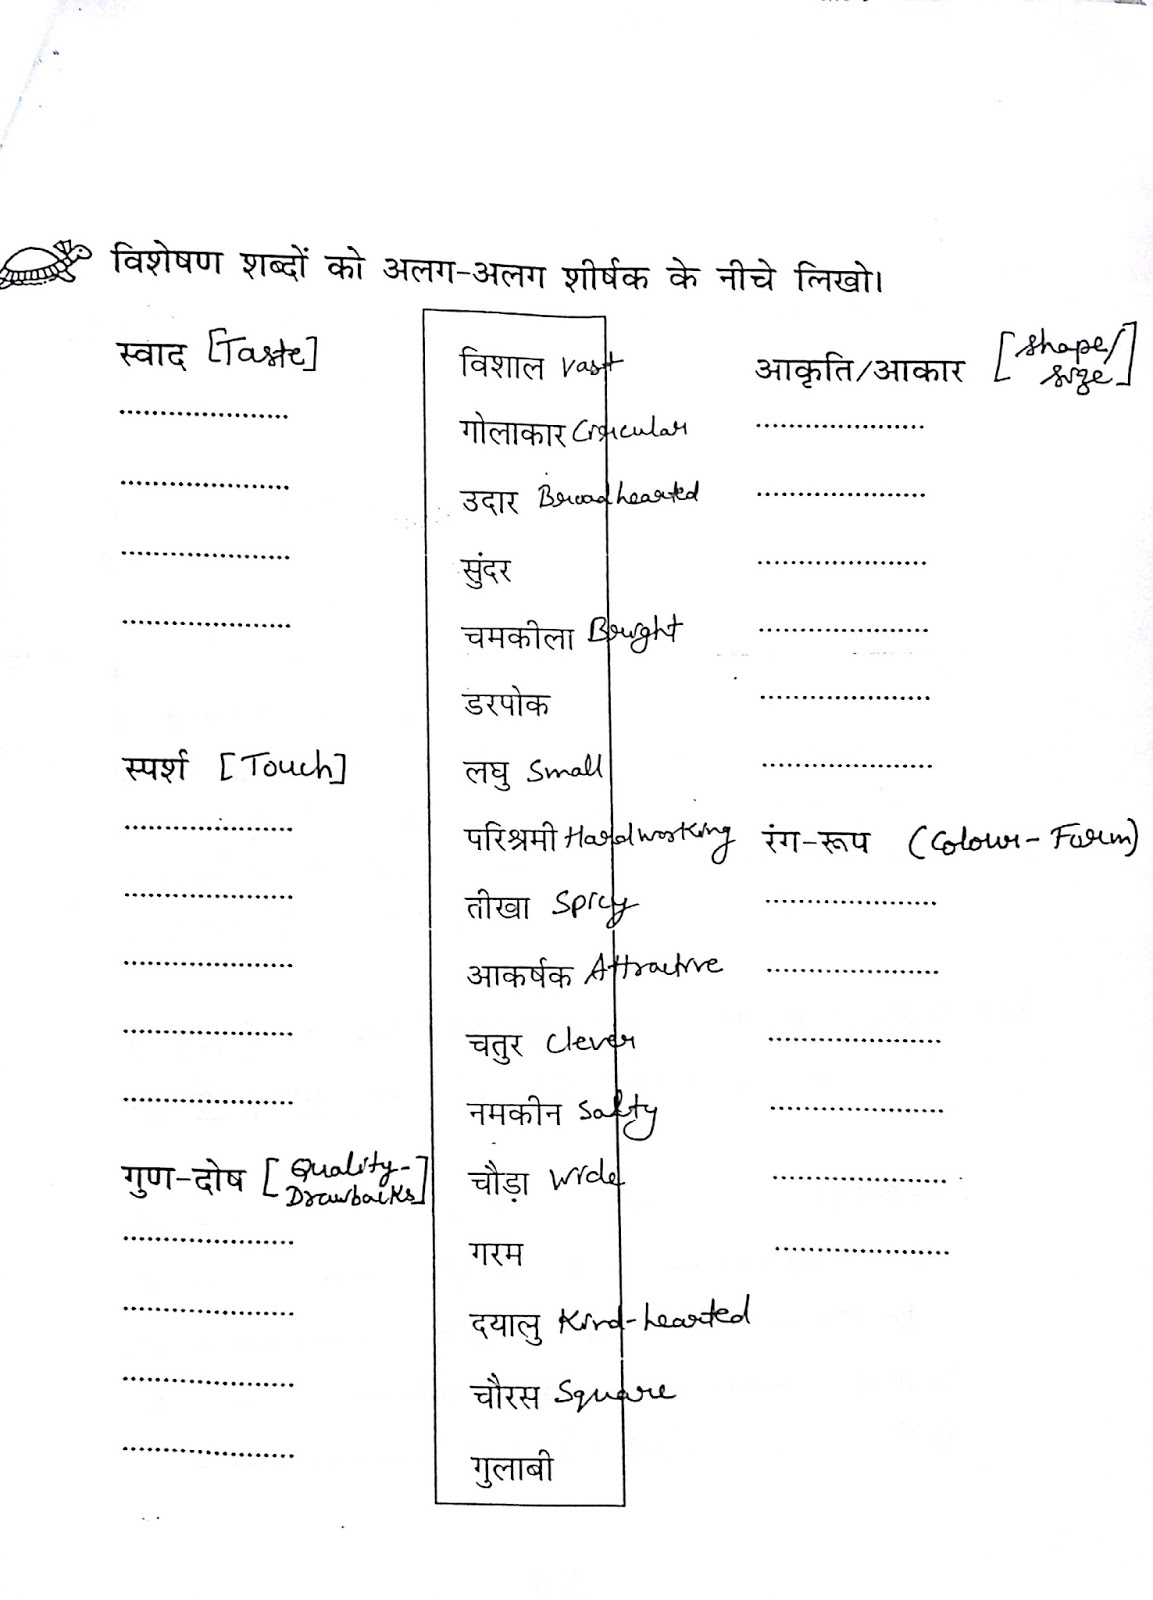 विशेषण शब्दों को अलग-अलग शीर्षक के नीचे लिखो।
स्वाद [Taste]
स्पर्श [Touch]
गुण-दोष [Quality-
Drawbacks]
विशाल Vast
गोलाकार Circular
उदार Broad hearted
सुंदर
चमकीला Bright
डरपोक
लघु Small
परिश्रमी Hardworking
तीखा Spicy
आकर्षक Attractive
चतुर Clever
नमकीन Salty
चौड़ा Wide
गरम
दयालु Kind-hearted
चौरस Square
गुलाबी
आकृति/आकार [Shape/
Size]
रंग-रूप (Colour-Form)